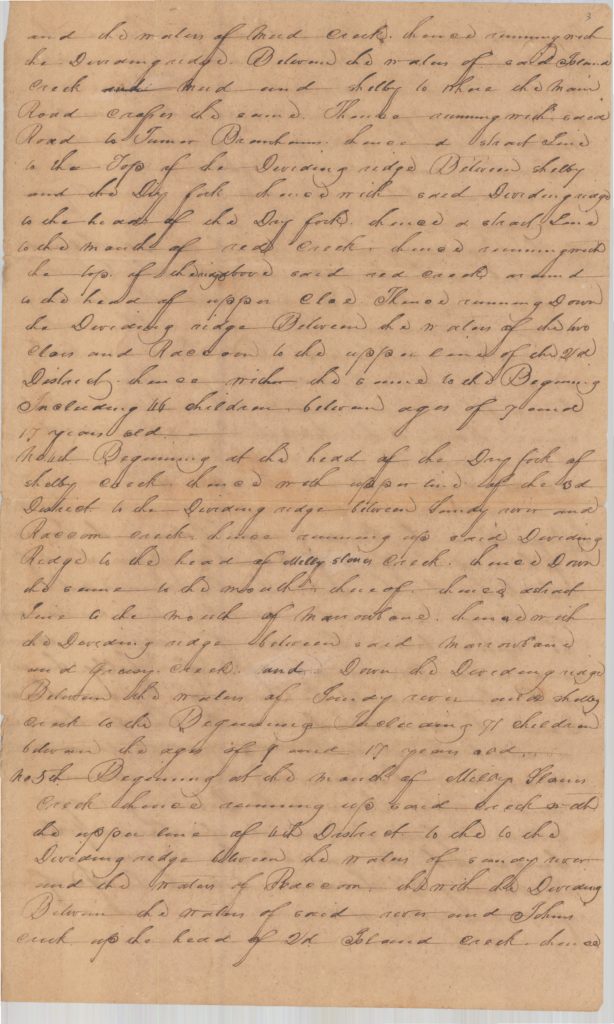 3
and the waters of Mud Creek. thence running with
the Dividing ridge. Between the waters of said Island
Creek and Mud and Shelby to where the Main
Road crosses the same. Thence running with said
Road to Turner Branhams. thence a strait Line
to the Top of the Dividing ridge Between Shelby
and the Dry fork thence with said Dividing ridge
to the head of the Dry fork. thence a strait Line
to the mouth of red Creek. thence running with
the top of the ridg above said red creek around
to the head of upper Cloe Thence running Down
the Dividing ridge Between the waters of the two
Cloes and Raccoon to the upper line of the 2d
District. thence with the same to the Begining
Including 46 children between ages of 7 and
17 years old
No 4th Begining at the head of the Dry fork of
Shelby Creek thence with upper line of the 3d
District to the Dividing ridge between Sandy river and
Raccoon creek. thence running up said Dividing
Ridge to the head of Milly Stones Creek. thence Down
the same to the mouth thereof. thence strait
Line to the mouth of Marrowbone. thence with
the Dividing ridge between said Marrowbone
and creek and Down the Dividing ridge
Between the waters of Sandy river and Shelby
Creek to the Beginning Including 71 children
between the ages of 7 and 17 years old
No 5th Begining at the Mouth of Milly Stones
Creek thence running up said Creek with
the upper line of 4th District to the to the
Dividing ridge between the waters of Sandy river
and the waters of Raccoon. with the Dividing
Between the waters of said river and Johns
creek up the head of 2d Island Creek. thence